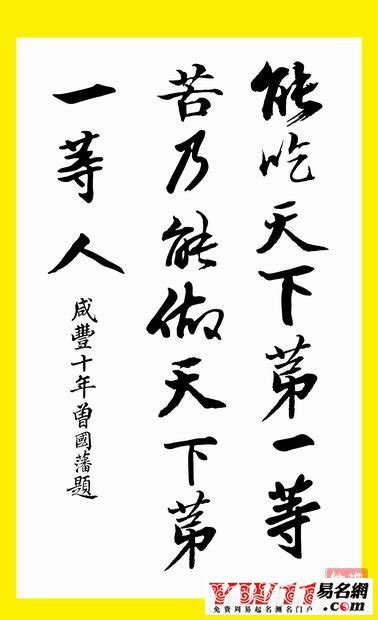 能吃天下苐一等
苦乃能做天下苐
一等人
咸豐十年曾國藩題
YW11易名網
.com
免费周易起名测名门户